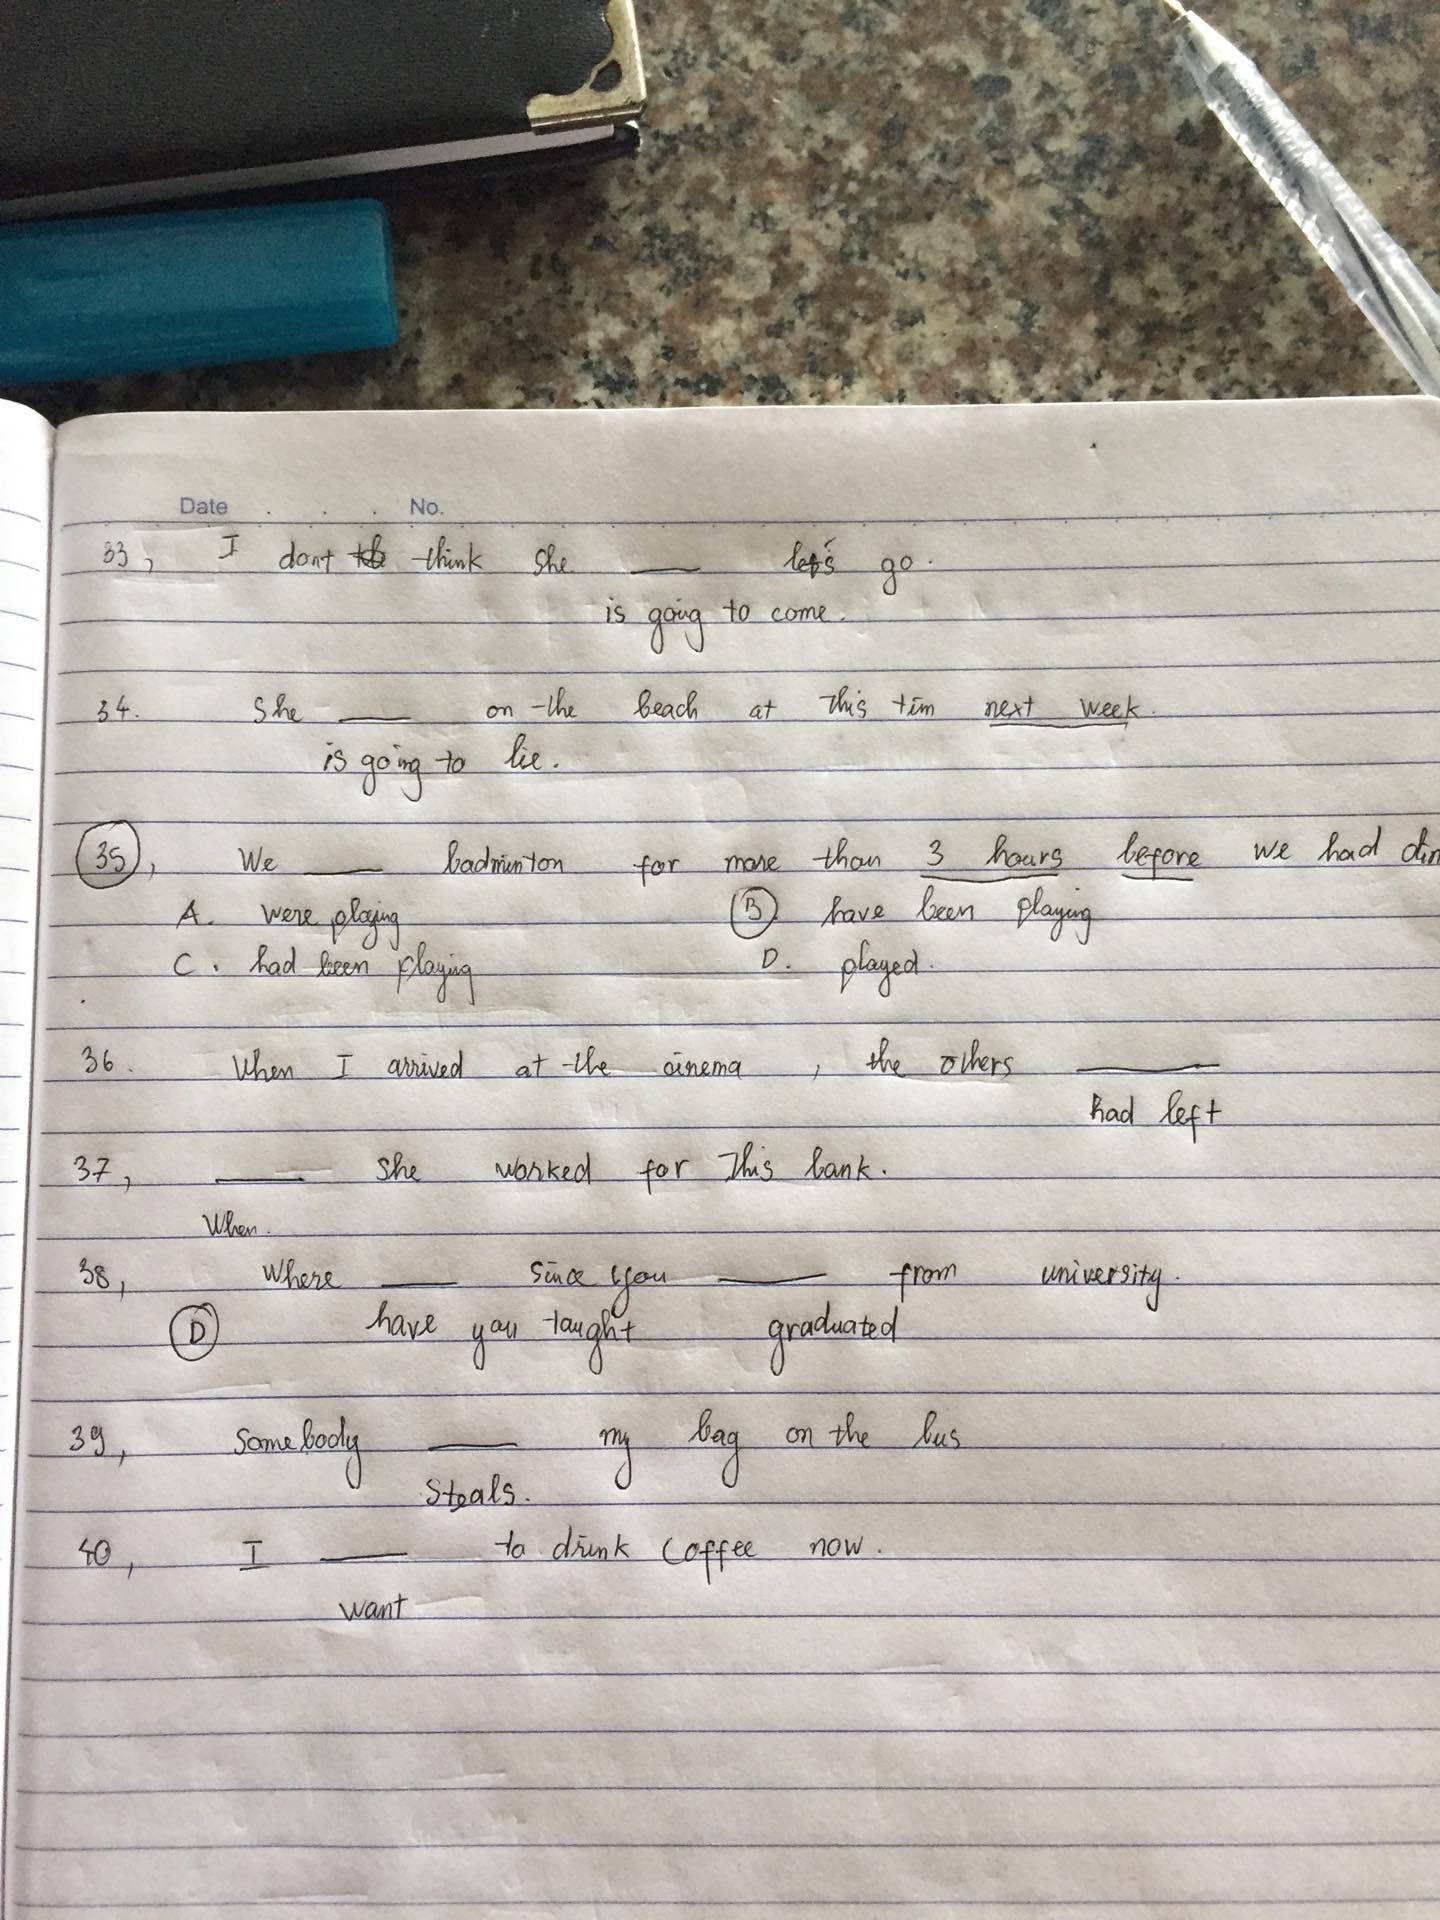 Date No.
33, I dont think she ___ let's go.
is going to come.
34. She ___ on the beach at this tim next week.
is going to lie.
35, We ___ badminton for more than 3 hours before we had din
A. were playing B have been playing
C. had been playing D. played.
36. When I arrived at the cinema, the others ___
had left
37, ___ she worked for this bank.
When.
38, Where ___ since you ___ from university.
D have you taught graduated
39, Somebody ___ my bag on the bus
steals.
40, I ___ to drink coffee now.
want